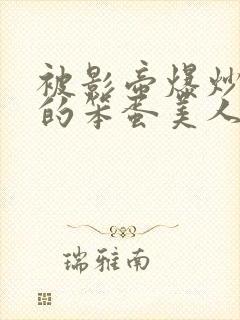 被影帝爆炒
的笨蛋美人
瑞雅南